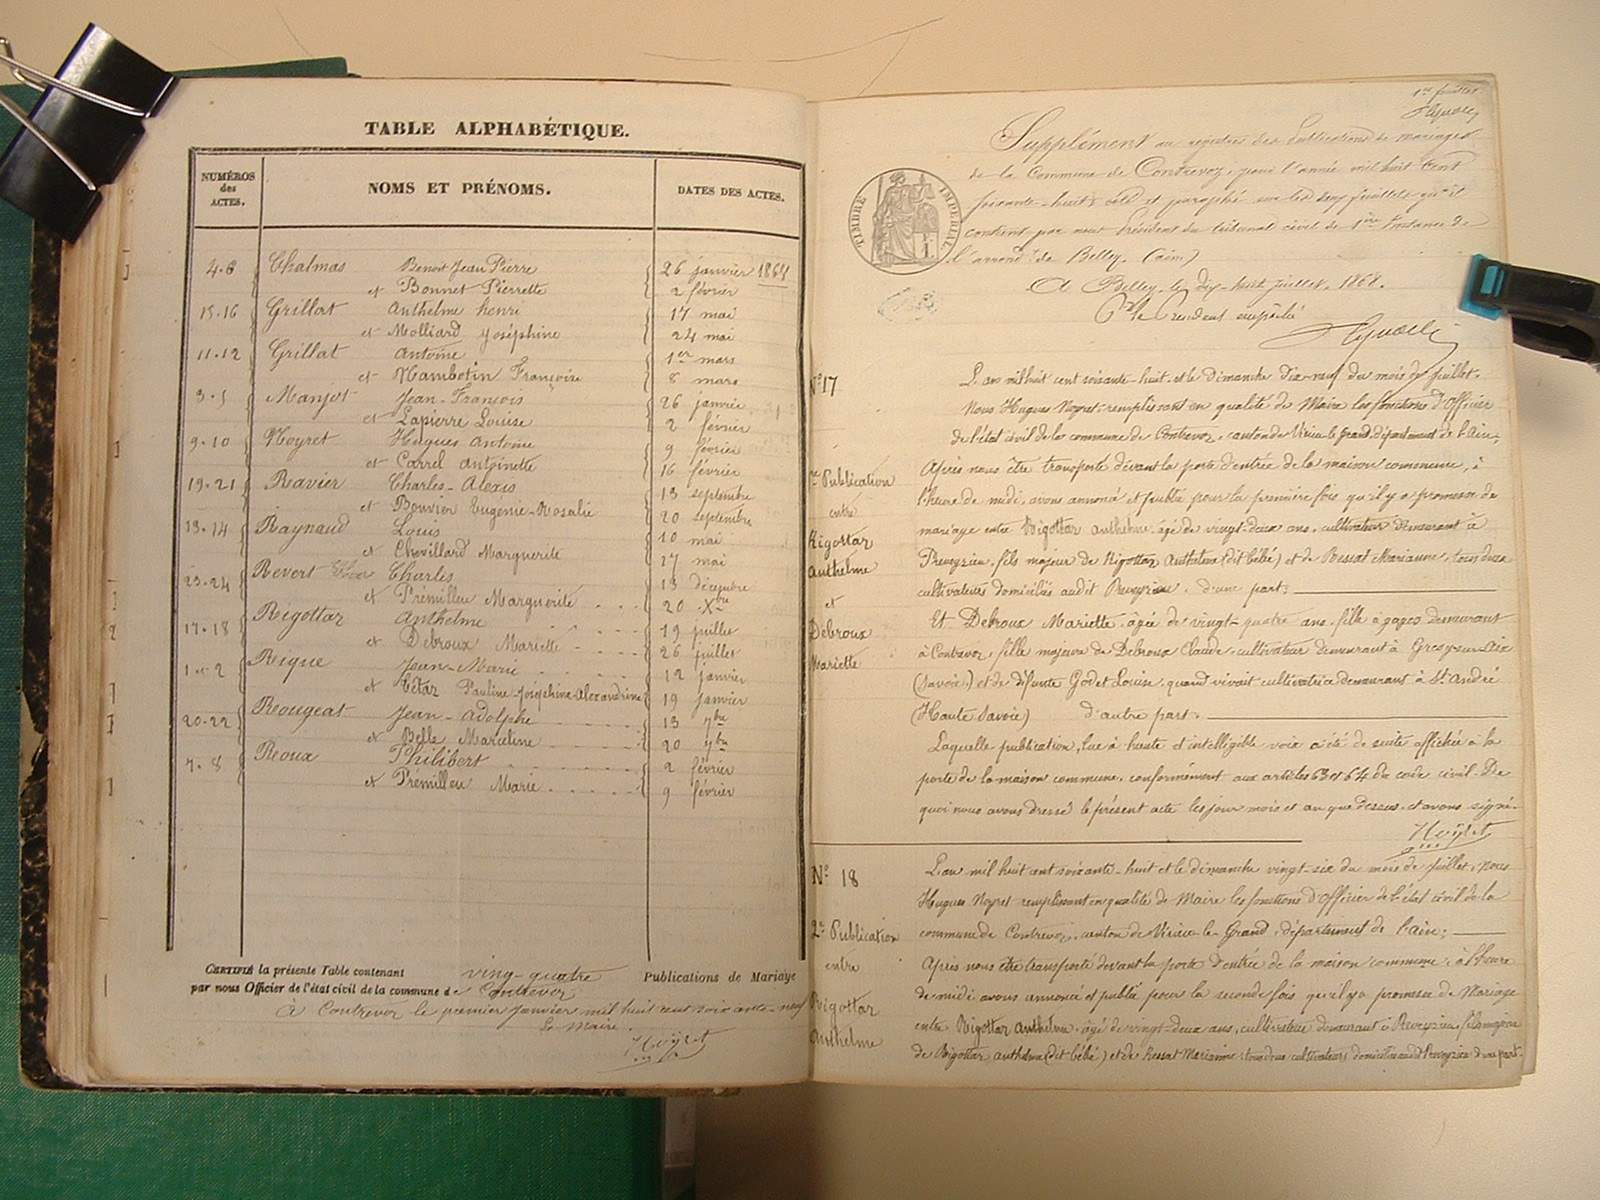 TABLE ALPHABÉTIQUE.
NUMÉROS des ACTES. NOMS ET PRÉNOMS. DATES DES ACTES.
4-6 Chalmas Benoit Jean Pierre 26 janvier 1868
et Bonnet Pierrette 2 février
15-16 Grillat Anthelme henri 17 mai
et Molliard Joséphine 24 mai
11-12 Grillat Antoine 1er mars
et Mambotin Françoise 8 mars
3-5 Manjot Jean-François 26 janvier
et Lapierre Louise 2 février
9-10 Noyret Hugues Antoine 9 février
et Carrel Antoinette 16 février
19-21 Ravier Charles-Alexis 13 septembre
et Bouvier Eugénie-Rosalie 20 septembre
13-14 Raynaud Louis 10 mai
et Chevillard Marguerite 17 mai
23-24 Revert Charles 13 décembre
et Prémilleu Marguerite 20 Xbre
17-18 Rigottaz Anthelme 19 juillet
et Debroux Mariette 26 juillet
1 et 2 Rique Jean-Marie 12 janvier
et Tétaz Pauline-Joséphine-Alexandrine 19 janvier
20-22 Rougeat Jean-Adolphe 13 7bre
et Belle Marceline 20 7bre
7-8 Roux Philibert 2 février
et Prémilleu Marie 9 février
CERTIFIÉ la présente Table contenant ving-quatre Publications de Mariage
par nous Officier de l'état civil de la commune de Contrevoz
à Contrevoz le premier janvier mil huit cent soixante-neuf
Le Maire.
Noyret
1er feuillet
Supplément au registre des Publications de mariages
de la Commune de Contrevoz, pour l'année mil huit cent
soixante-huit, coté et paraphé sur les deux feuillets qu'il
contient par nous Président du tribunal civil de 1ère Instance de
l'arrondt de Belley (ain)
TIMBRE IMPERIAL
A Belley, le dix-huit juillet, 1868.
Pr le Président empêché
No 17
L'an mil huit cent soixante-huit et le dimanche dix-neuf du mois de juillet.
Nous Hugues Noyret remplissant en qualité de Maire les fonctions d'Officier
de l'état civil de la commune de Contrevoz, canton de Virieu-le-grand, département de l'ain;
1re Publication
entre
Rigottaz
Anthelme
et
Debroux
Mariette
Après nous être transporté devant la porte d'entrée de la maison commune, à
l'heure de midi, avons annoncé et publié pour la première fois qu'il y a promesse de
mariage entre Rigottaz Anthelme, âgé de vingt-deux ans, cultivateur demeurant à
Preveyzieu, fils majeur de Rigottaz Anthelme (dit bébé) et de Ressat Marianne, tous deux
cultivateurs domiciliés audit Preveyzieu. d'une part;
Et Debroux Mariette, âgée de vingt-quatre ans, fille à gages demeurant
à Contrevoz, fille majeure de Debroux Claude, cultivateur demeurant à Gresy-sur-Aix
(Savoie) et de défunte Godet Louise, quand vivait cultivatrice demeurant à St André
(Haute Savoie) d'autre part;
Laquelle publication, lue à haute et intelligible voix a été de suite affichée à la
porte de la maison commune, conformément aux articles 63 et 64 du code civil. De
quoi nous avons dressé le présent acte les jour mois et an que dessus, et avons signé.
Noyret
No 18
2e Publication
entre
Rigottaz
Anthelme
L'an mil huit cent soixante-huit et le dimanche vingt-six du mois de juillet, nous
Hugues Noyret remplissant en qualité de Maire les fonctions d'Officier de l'état civil de la
commune de Contrevoz, canton de Virieu-le-Grand, département de l'ain;
Après nous être transporté devant la porte d'entrée de la maison commune, à l'heure
de midi avons annoncé et publié pour la seconde fois qu'il y a promesse de Mariage
entre Rigottaz Anthelme, âgé de vingt-deux ans, cultivateur demeurant à Preveyzieu, fils majeur
de Rigottaz anthelme (dit bébé) et de Ressat Marianne, tous deux cultivateurs domiciliés audit Preveyzieu d'une part.